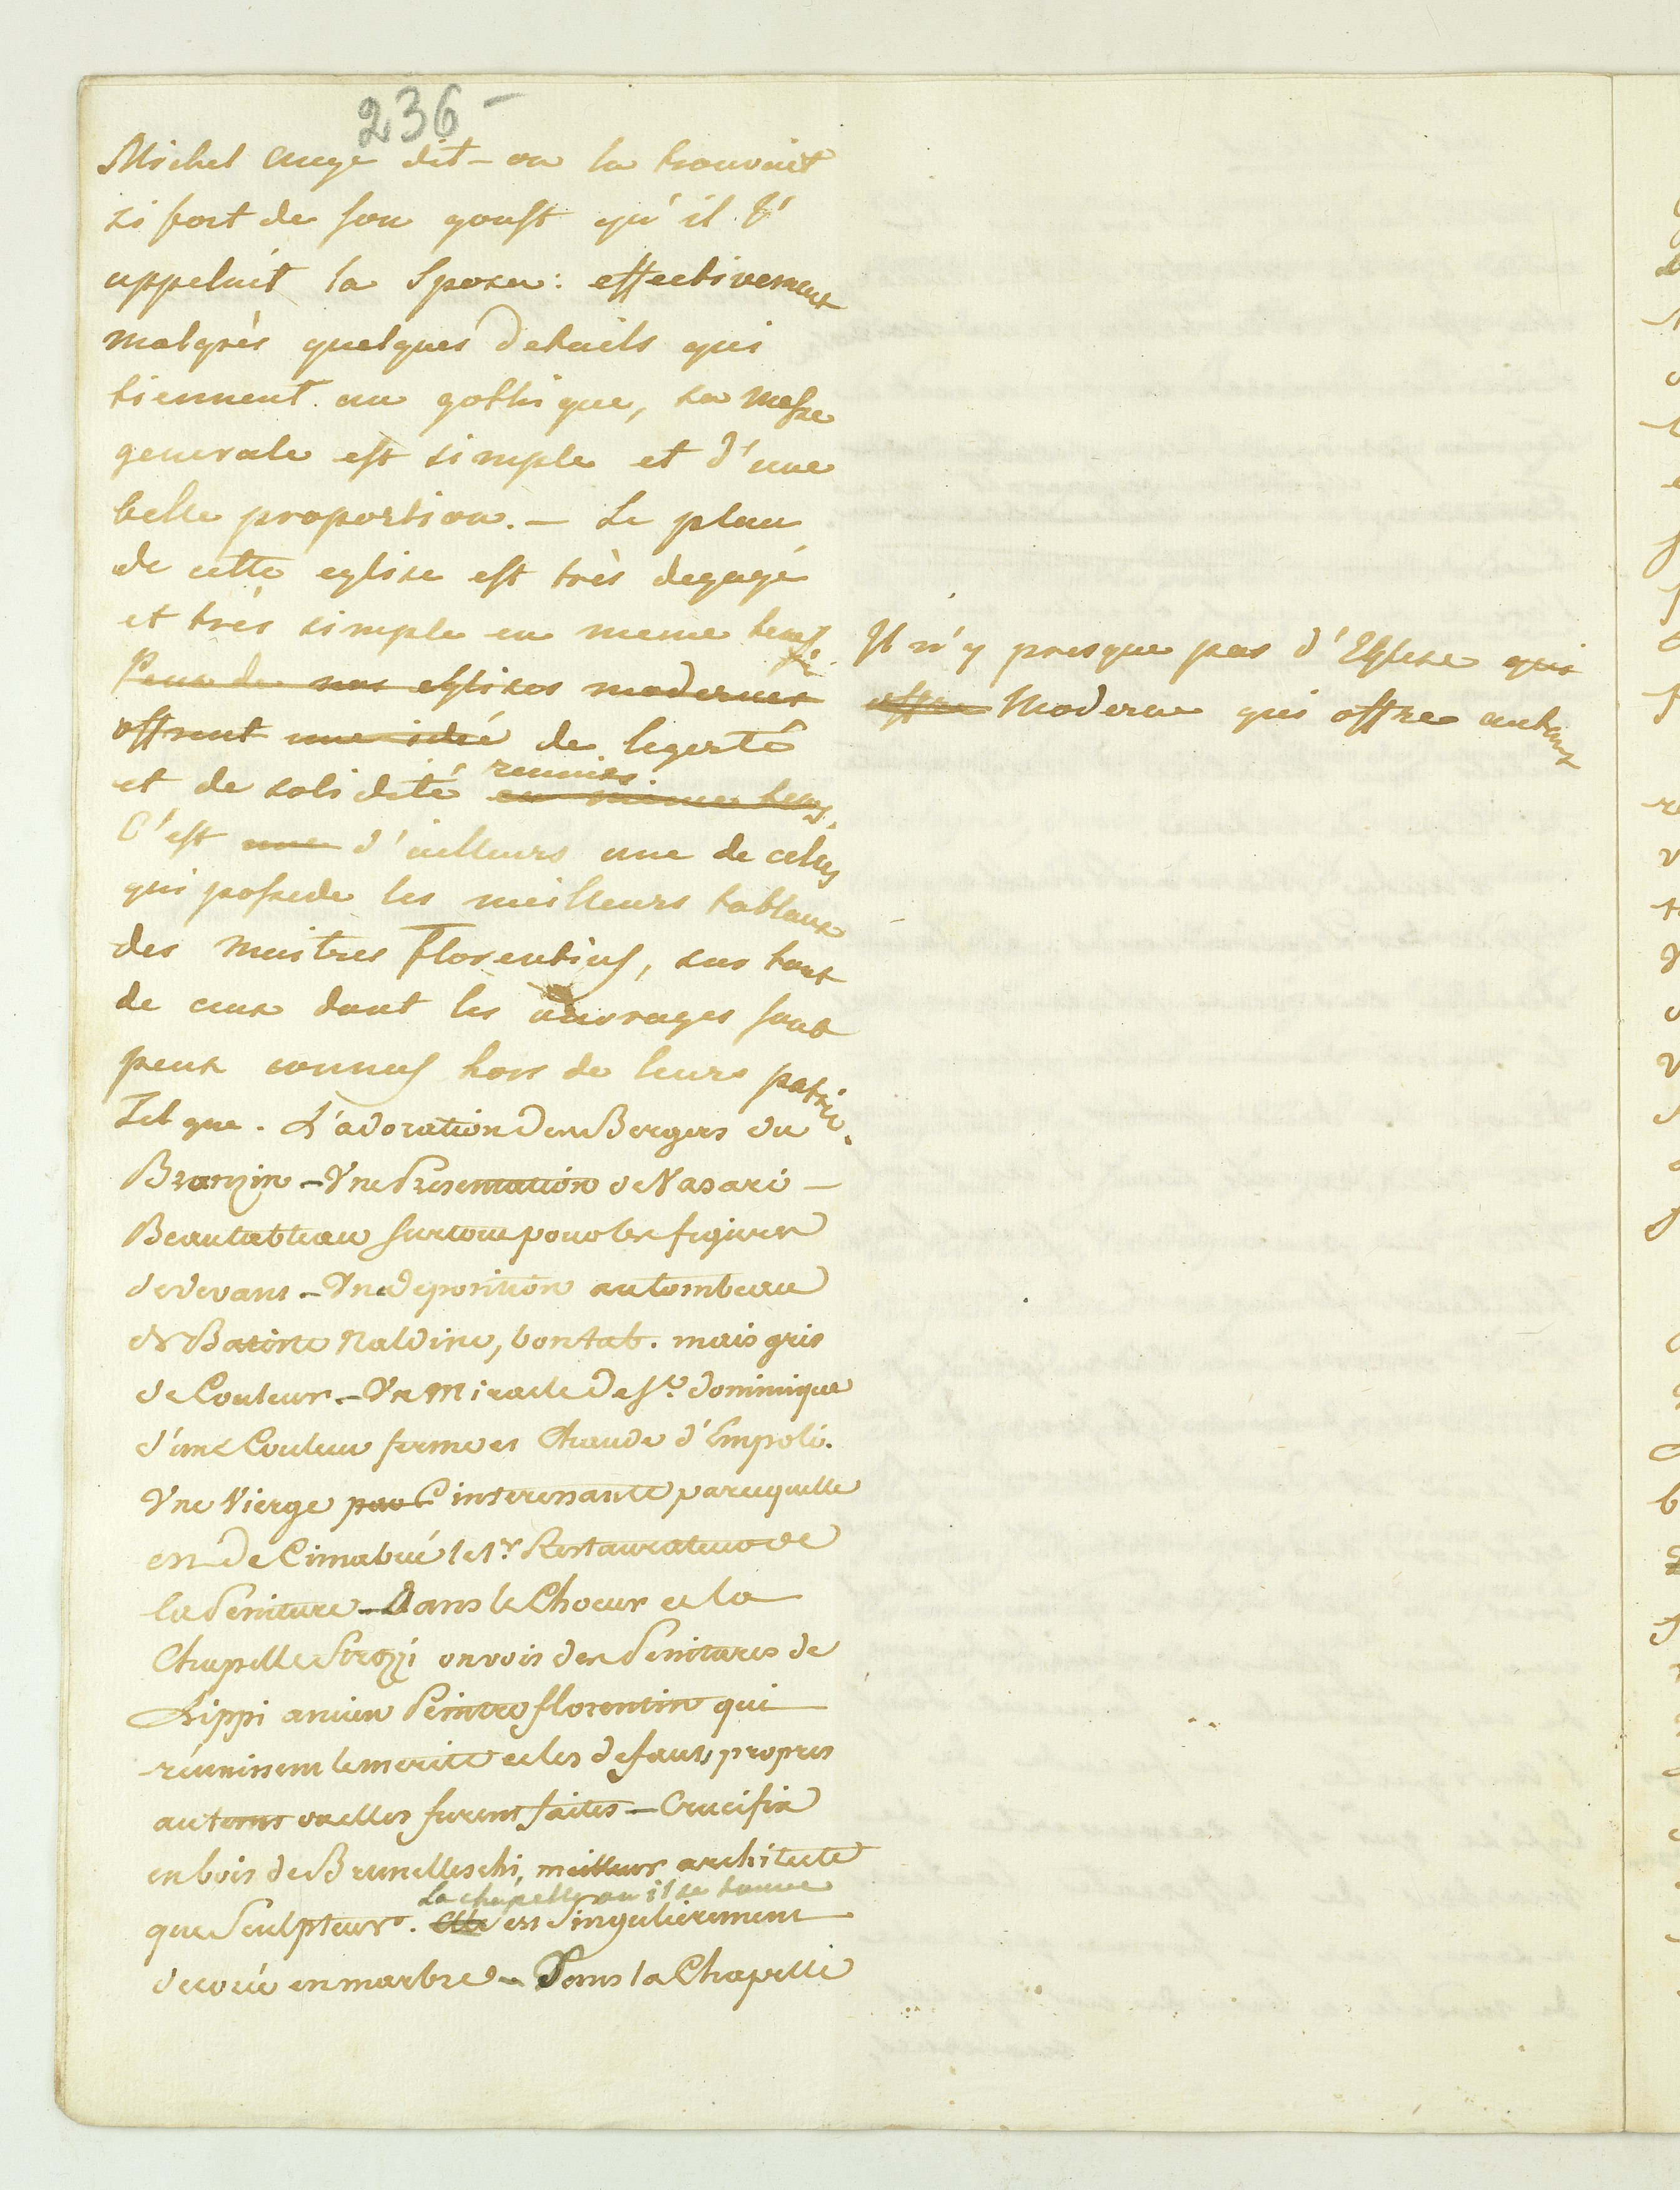 236 -
Michel ange dit-on la trouvait
si fort de son goust qu'il l'
appelait la Sposa: effectivement
malgrès quelques details qui
tiennent au gothique, sa masse
generale est simple et d'une
belle proportion. - Le plan
de cette eglise est très degagé
et très simple en meme tems.
Peu de nos eglises modernes
offrent une idée de legerté
et de solidité en même tems.
reunies.
C'est une d'ailleurs une de celles
qui possede les meilleurs tableaux
des maitres Florentins, sur tout
de ceux dont les ouvrages sont
peux connus hors de leurs patrie.
Tel que. L'adoration des Bergers du
Bronzin - Une Presentation de Vasari -
Beau tableau surtout pour les figures
de devant - Une deposition au tombeau
de Batiste Naldine, bon tab. mais gris
de Couleur - Un Miracle de St. dominique
d'une Couleur ferme et Chaude d'Empoli.
Une Vierge interessante parcequelle
est de Cimabué le 1r Restaurateur de
la Peinture - Dans le Choeur et la
Chapelle Strozzi on vois des Peintures de
Lippi ancien Peintre florentin qui
réunissent le merite et les defauts propres
au tems ou elles furent faites - Crucifix
en bois de Brunelleschi, meilleur architecte
La chapelle ou il se trouve
que Sculpteur. Elle est Singulierement
decorée en marbre - Dans la Chapelle
Il n'y presque pas d'Eglise qui
offre Moderne qui offre autant